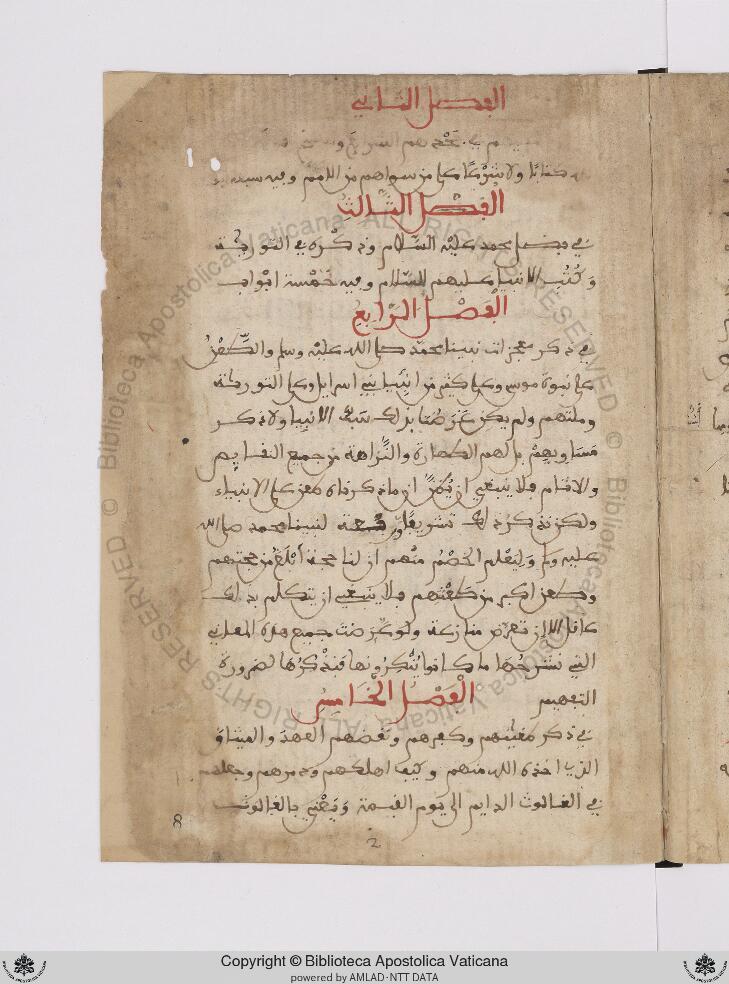 الفصل الثاني
ولا شركا كما من سواهم من الامم وفيه
الفصل الثالث
في فضل محمد عليه السلام وذكره في التورية
وكتب الانبيا عليهم السلام وفيه خمسة ابواب
الفصل الرابع
في ذكر معجزات نبينا محمد صلى الله عليه وسلم والطعن
على نبوة موسى وعلى كثير من انبياء بني اسرايل وعلى التورية
وملتهم ولم يكن غرضنا بذلك سب الانبيا ولا ذكر
مساويهم بل لهم الطهارة والنزاهة من جميع النقايص
والاثام فلا ينبغي ان يظن ان ما ذكرناه طعن على الانبياء
ولكن نذكر ذلك تشريفا ورفعة لنبينا محمد صلى الله
عليه وسلم وليعلم الخصم منهم ان لنا حجة ابلغ من حجتهم
وطعن اكبر من طعنهم فلا ينبغي ان يتكلم بذلك
عاقل الا ان تعرض منازعة ولو عرضت جميع هذه المعاني
التي نشرحها ما كانوا ينكرونها فنذكرها لضرورة
التفهيم
الفصل الخامس
في ذكر وكفرهم ونقضهم العهد والميثاق
الذي اخذه الله منهم وكيف اهلكهم ودمرهم وجعلهم
في الدايم الى يوم القيمة ونعني
8
2
Copyright © Biblioteca Apostolica Vaticana
powered by AMLAD·NTT DATA